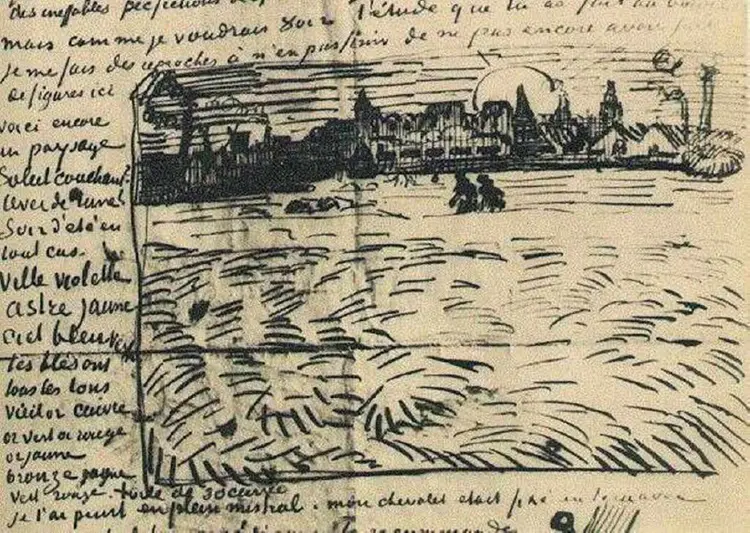 des ineffables perfections
l'étude que tu as fait au
mais comme je voudrais voir
je me fais des reproches à n'en pas finir de ne pas encore avoir fait
de figures ici
voici encore
un paysage
Soleil couchant?
lever de lune?
Soir d'été en
tout cas.
Ville violette
astre jaune
ciel bleu vert
les blés ont
tous les tons
vieil or cuivre
or vert or rouge
or jaune
bronze jaune
vert rouge. toile de 30 carrée
je l'ai peint en plein mistral. mon chevalet etait fixé en terre avec
je te recommande